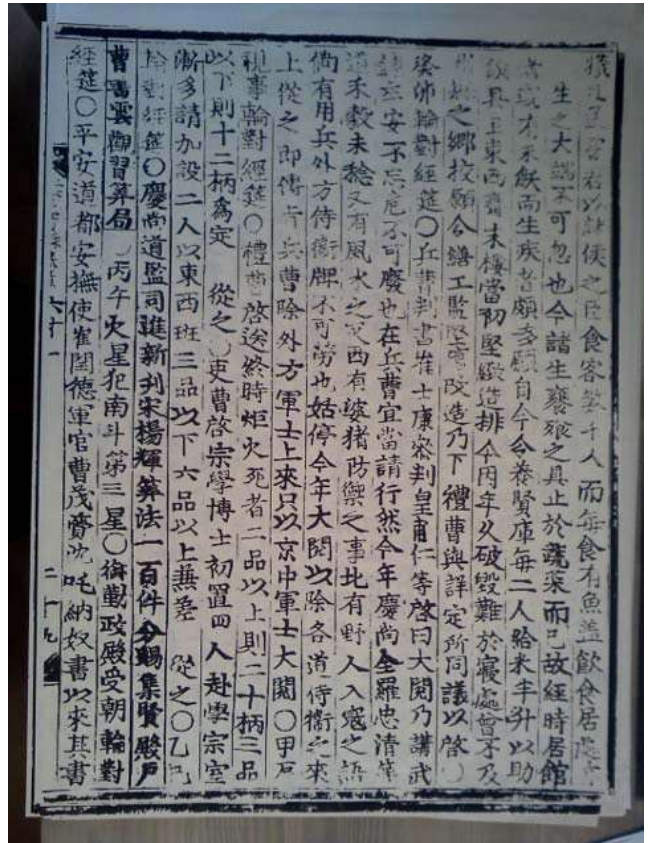 孟嘗君以諸侯之臣食客數千人而每食有魚盖飮食居處
生之大端不可忽也今諸生饔飱之具止於蔬菜而已故經時居館
者或才不飫而生疾者頗多願自今令養賢庫每二人給米半升以助
饌具且東西齋末樓當初堅緻造排今因年久破毁難於寢處曾不及
州縣之鄕校願令繕工監堅實改造乃下禮曹與詳定所同議以啓○
癸卯輪對經筵○兵曹判書崔士康參判皇甫仁等啓曰大閱乃講武
安不忘危不可廢也在兵曹宜當請行然今年慶尙全羅忠淸等
道禾穀未稔又有風水之災西有婆猪防禦之事北有野人入寇之語
倘有用兵外方侍衛牌不可勞也姑停今年大閱以除各道侍衛之來
上從之卽傳旨兵曹除外方軍士上來只以京中軍士大閱○甲辰
視事輪對經筵○禮曹啓送終時炬火死者二品以上則二十柄三品
以下則十二柄爲定 從之○吏曹啓宗學博士初置四人赴學宗室
漸多請加設二人以東西班三品以下六品以上兼差 從之○乙巳
輪對經筵○慶尙道監司進新刊宋楊輝算法一百件分賜集賢殿戶
曹書雲觀習算局○丙午火星犯南斗第三星○御勤政殿受朝輪對
經筵○平安道都安撫使崔閏德軍官曹茂賫沈吒納奴書以來其書
六十一
二十九